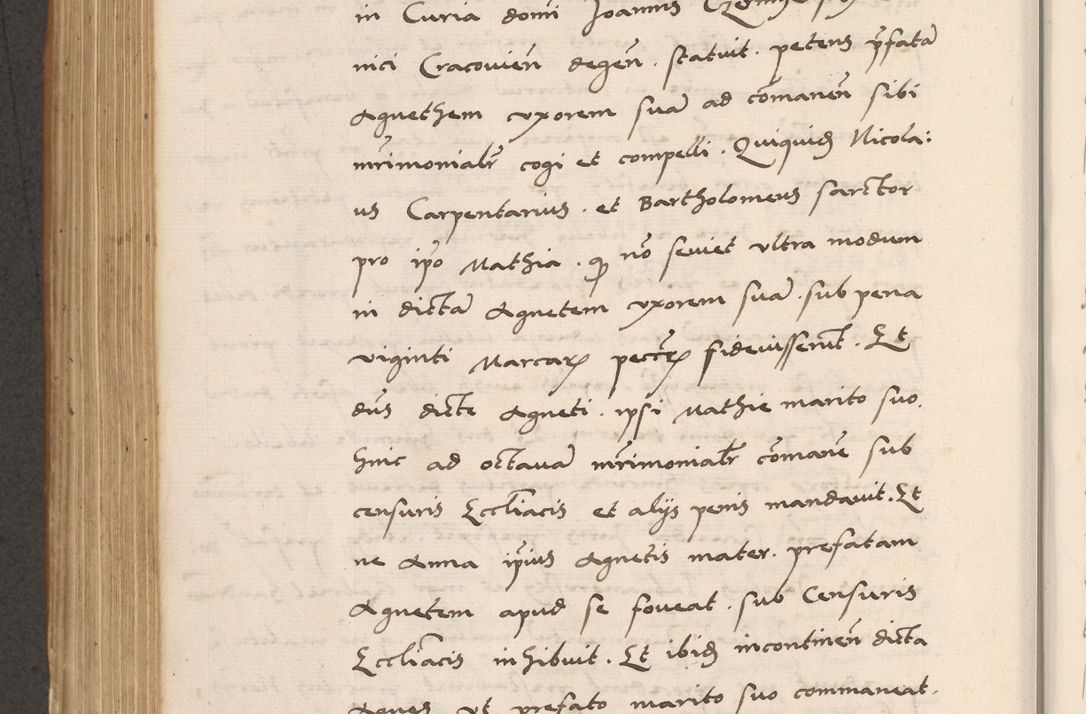 in Curia domi Joannis
nici Cracouien̄ degen̄. statuit. petens p̄fatā
Agnethem vxorem suā ad cōmanen̄ sibi
mr̄imonialr̄ cogi et compelli. Quiquid Nicola:
us Carpentarius. et Bartholomeus sarctor
pro ip̄o Mathia. qp nō seuiet vltra modum
in dictā Agnetem vxorem suā. sub pena
viginti Marcarꝝ pecc̄rꝝ fideiusserūt. Et
dn̄s dicte Agneti. ipsi Mathie marito suo.
hinc ad octauā mr̄imonialr̄ cōmane sub
censuris Eccl̄iacis et alijs penis mandauit. Et
ne Anna ip̄ius Agnetis mater. prefatam
Agnetem apud se foueat. sub Censuris
Eccl̄iacis inhibuit. Et ibid incontinen̄ dicta
Agnes vt prefato marito suo commaneat.